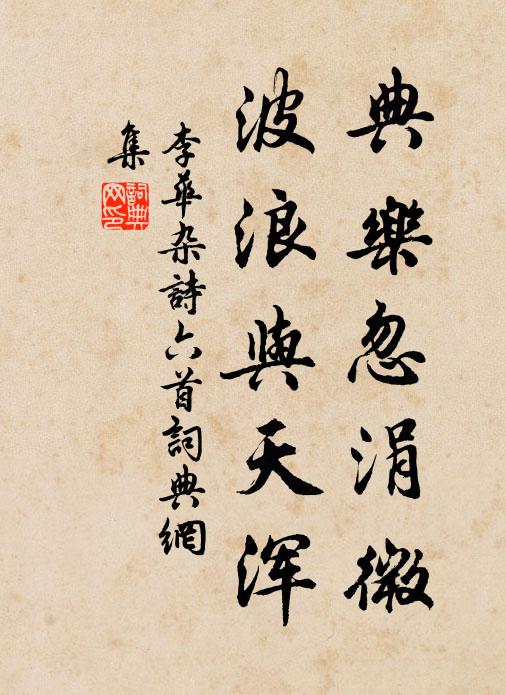 典樂忽涓微
波浪與天浑
李華杂詩六首詞典網
集
詞典网印